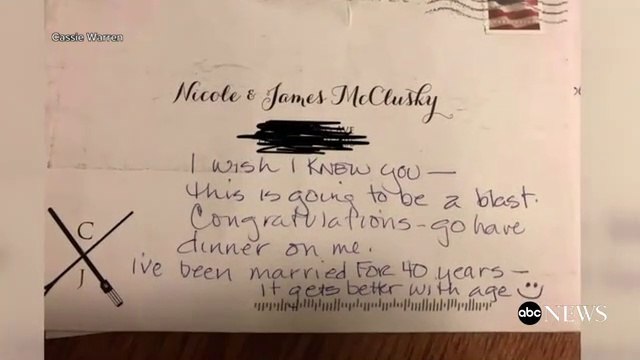 Cassie Warren
Nicole & James McClusky
I wish I knew you —
this is going to be a blast.
Congratulations - go have
dinner on me.
I've been married for 40 years -
it gets better with age
C
J
abc NEWS